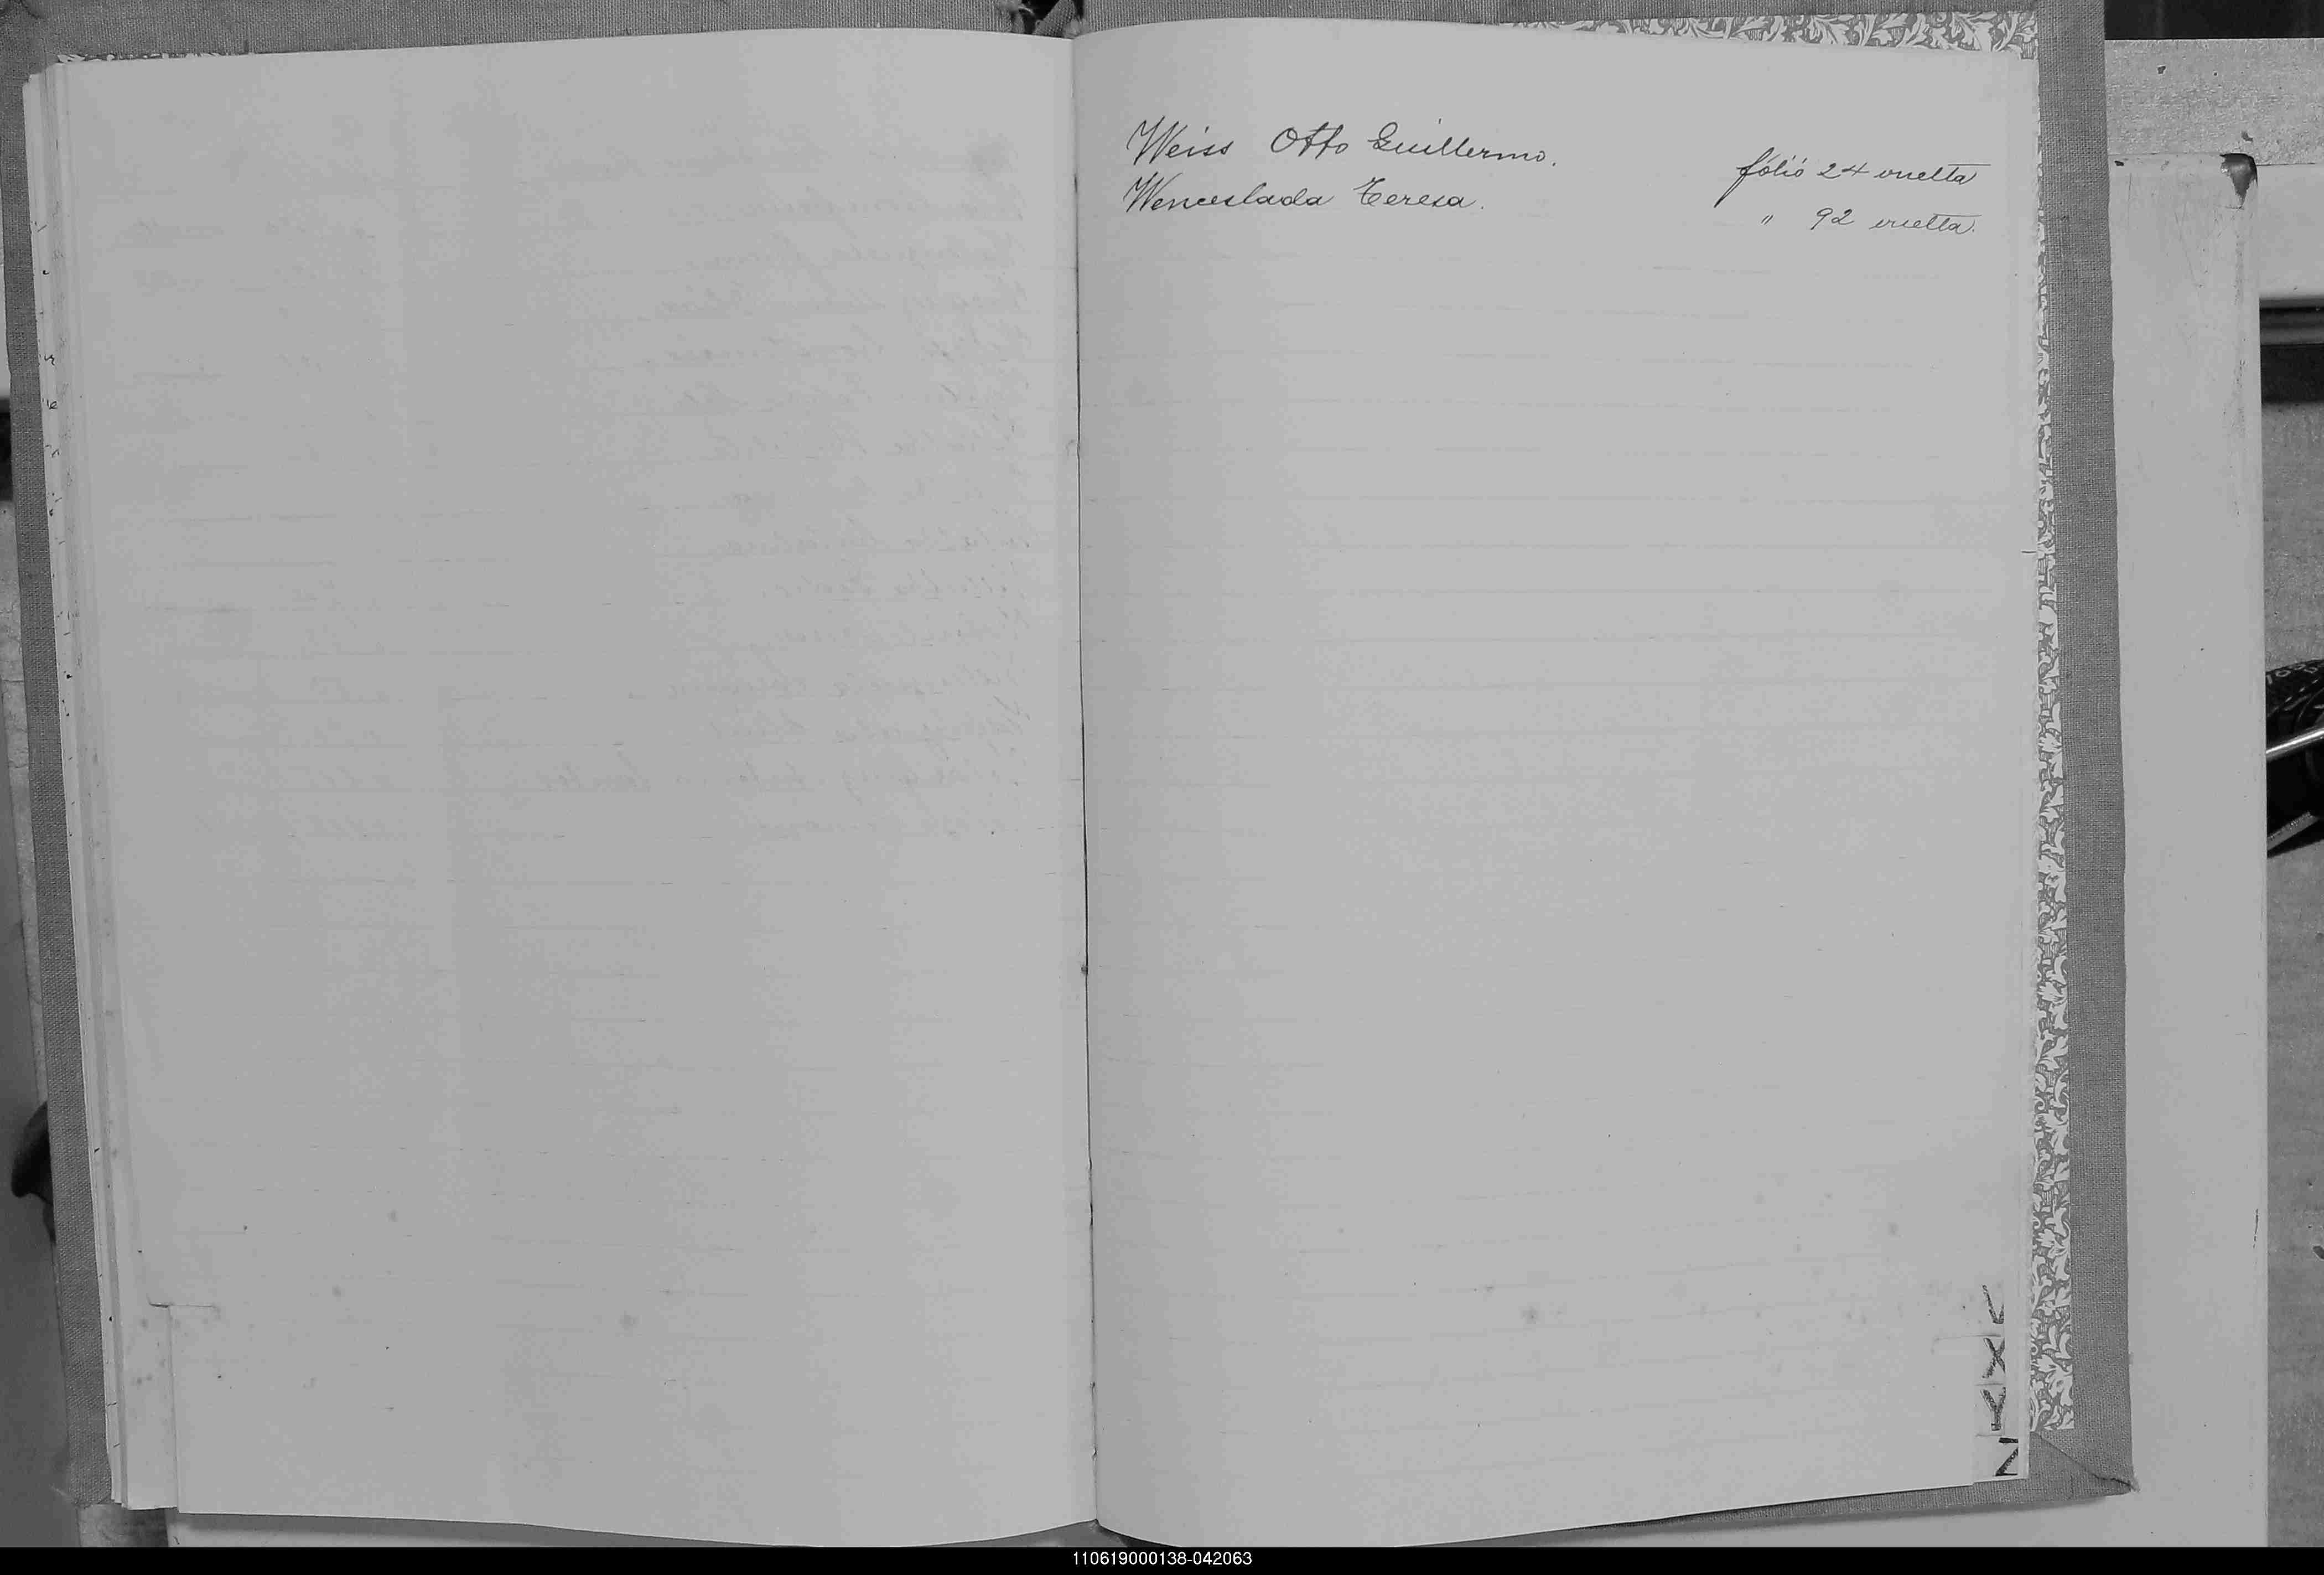 Weiss Otto Guillermo. fólio 24 vuelta
Wenceslada Teresa. " 92 vuelta.
V
X
Y
Z
110619000138-042063